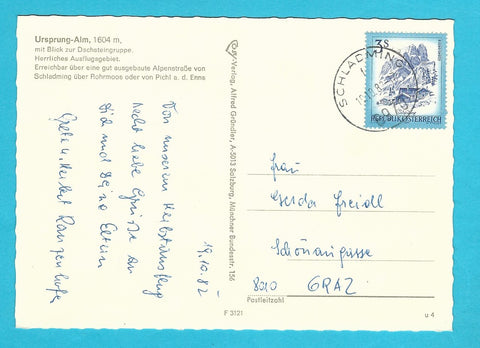 Ursprung-Alm, 1604 m,
mit Blick zur Dachsteingruppe.
Herrliches Ausflugsgebiet.
Erreichbar über eine gut ausgebaute Alpenstraße von
Schladming über Rohrmoos oder von Pichl a. d. Enns
19.10.82
Von unserem Herbstausflug
recht liebe Grüße an
Dich und Deine Eltern
Grete u. Herbert
Cosy-Verlag, Alfred Gründler, A-5013 Salzburg, Münchner Bundesstr. 156
3 S
REPUBLIK ÖSTERREICH
SCHLADMING
Frau
Gerda Freidl
Schönaugasse
8010 GRAZ
Postleitzahl
F 3121
u 4